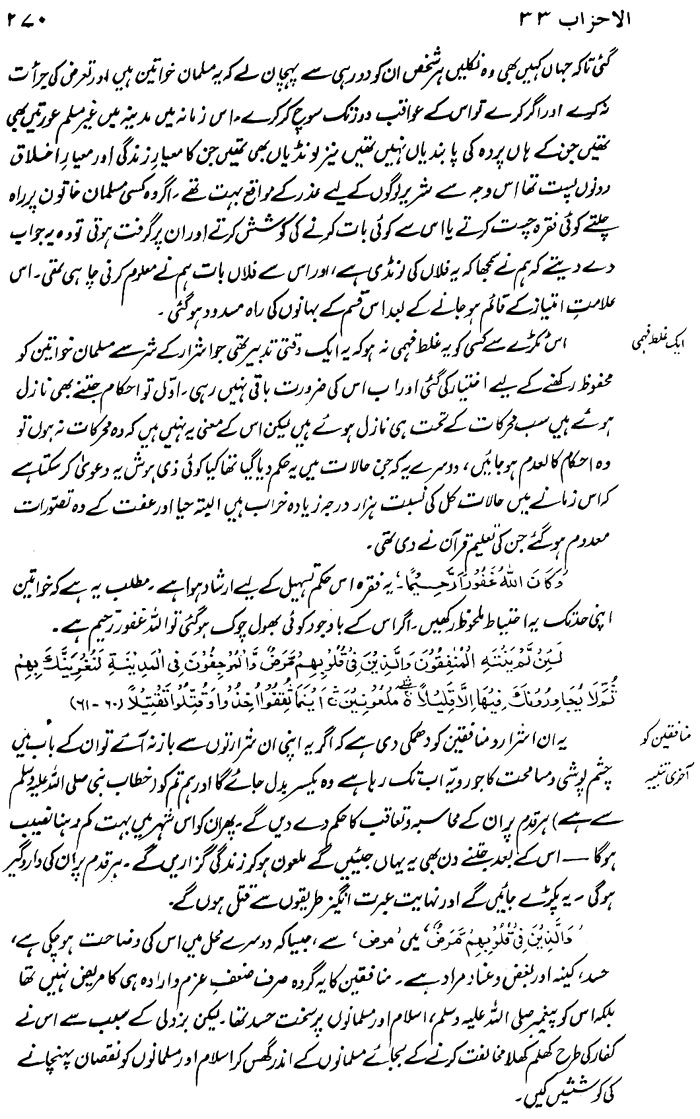 الاحزاب ۳۳
۲۷۰
گئی تاکہ جہاں کہیں بھی وہ نکلیں ہر شخص ان کو دور ہی سے پہچان لے کہ یہ مسلمان خواتین ہیں اور تعرض کی جرأت
نہ کرے اور اگر کرے تو اس کے عواقب دور تک سوچ کر کرے۔ اس زمانہ میں مدینہ میں غیر مسلم عورتیں بھی
تھیں جن کے ہاں پردہ کی پابندیاں نہیں تھیں نیز لونڈیاں بھی تھیں جن کا معیارِ زندگی اور معیارِ اخلاق
دونوں پست تھا اس وجہ سے شریر لوگوں کے لیے عذر کے مواقع بہت تھے۔ اگر وہ کسی مسلمان خاتون پر راہ
چلتے کوئی فقرہ چست کرتے یا اس سے کوئی بات کرنے کی کوشش کرتے اور ان پر گرفت ہوتی تو وہ یہ جواب
دے دیتے کہ ہم نے سمجھا کہ یہ فلاں کی لونڈی ہے، اور اس سے فلاں بات ہم نے معلوم کرنی چاہی تھی۔ اس
علامتِ امتیاز کے قائم ہو جانے کے بعد اس قسم کے بہانوں کی راہ مسدود ہو گئی۔
ایک غلط فہمی
اس ٹکڑے سے کسی کو یہ غلط فہمی نہ ہو کہ یہ ایک وقتی تدبیر تھی جو اشرار کے شر سے مسلمان خواتین کو
محفوظ رکھنے کے لیے اختیار کی گئی اور اب اس کی ضرورت باقی نہیں رہی۔ اول تو احکام جتنے بھی نازل
ہوئے ہیں سب محرکات کے تحت ہی نازل ہوئے ہیں لیکن اس کے معنی یہ نہیں ہیں کہ وہ محرکات نہ ہوں تو
وہ احکام کالعدم ہو جائیں، دوسرے یہ کہ جن حالات میں یہ حکم دیا گیا تھا کیا کوئی ذی ہوش یہ دعویٰ کر سکتا ہے
کہ اس زمانے میں حالات کل کی نسبت ہزار درجہ زیادہ خراب ہیں البتہ حیا اور عفت کے وہ تصورات
معدوم ہو گئے جن کی تعلیم قرآن نے دی تھی۔
'وَكَانَ اللّٰهُ غَفُوْرًا رَّحِيْمًا'۔ یہ فقرہ اس حکم تسہیل کے لیے ارشاد ہوا ہے۔ مطلب یہ ہے کہ خواتین
اپنی حد تک یہ احتیاط ملحوظ رکھیں۔ اگر اس کے باوجود کوئی بھول چوک ہو گئی تو اللہ غفور رحیم ہے۔
لَئِنْ لَّمْ يَنْتَهِ الْمُنٰفِقُوْنَ وَالَّذِيْنَ فِيْ قُلُوْبِهِمْ مَّرَضٌ وَّالْمُرْجِفُوْنَ فِي الْمَدِيْنَةِ لَنُغْرِيَنَّكَ بِهِمْ
ثُمَّ لَا يُجَاوِرُوْنَكَ فِيْهَا اِلَّا قَلِيْلًا ۛ مَّلْعُوْنِيْنَ ۛ اَيْنَمَا ثُقِفُوْٓا اُخِذُوْا وَقُتِّلُوْا تَقْتِيْلًا (۶۰-۶۱)
منافقین کو
آخری تنبیہ
یہ ان اشرار و منافقین کو دھمکی دی ہے کہ اگر یہ اپنی ان شرارتوں سے باز نہ آئے تو ان کے باب میں
چشم پوشی و مسامحت کا جو رویہ اب تک رہا ہے وہ یکسر بدل جائے گا اور ہم تم کو (خطاب نبی صلی اللہ علیہ وسلم
سے ہے) ہر قدم پر ان کے محاسبہ و تعاقب کا حکم دے دیں گے۔ پھر ان کو اس شہر میں بہت کم رہنا نصیب
ہوگا — اس کے بعد جتنے دن بھی یہ یہاں جیئیں گے ملعون ہو کر زندگی گزاریں گے۔ ہر قدم پر ان کی داروگیر
ہوگی۔ یہ پکڑے جائیں گے اور نہایت عبرت انگیز طریقوں سے قتل ہوں گے۔
'وَالَّذِيْنَ فِيْ قُلُوْبِهِمْ مَّرَضٌ' میں 'مرض' سے، جیسا کہ دوسرے محل میں اس کی وضاحت ہو چکی ہے،
حسد، کینہ اور بغض و عناد مراد ہے۔ منافقین کا یہ گروہ صرف ضعفِ عزم و ارادہ ہی کا مریض نہیں تھا
بلکہ اس کو پیغمبر صلی اللہ علیہ وسلم، اسلام اور مسلمانوں پر سخت حسد تھا۔ لیکن بزدلی کے سبب سے اس نے
کفار کی طرح کھلم کھلا مخالفت کرنے کے بجائے مسلمانوں کے اندر گھس کر اسلام اور مسلمانوں کو نقصان پہنچانے
کی کوششیں کیں۔